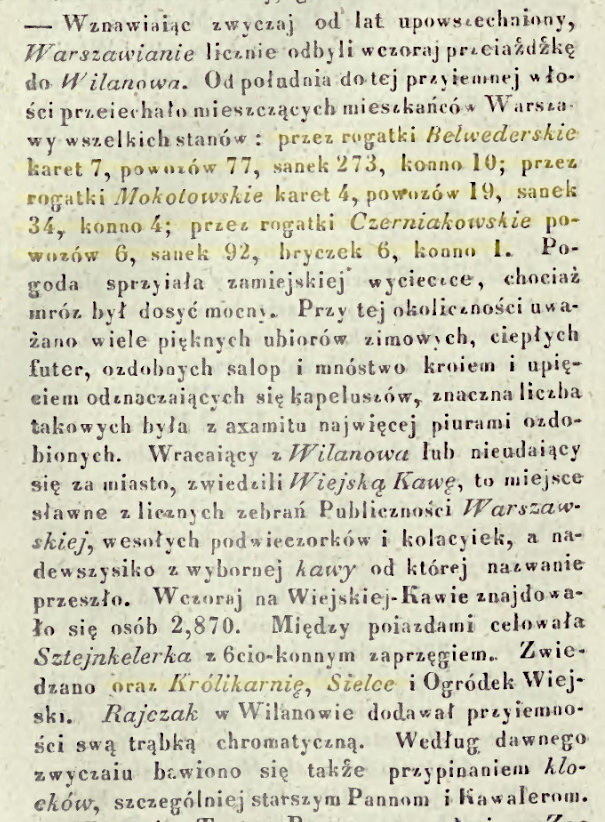 — Wznawiaiąc zwyczaj od lat upowszechniony,
Warszawianie licznie odbyli wczoraj przeiażdżkę
do Wilanowa. Od południa do tej przyiemnej wło-
ści przeiechało mieszczących mieszkańców Warsza-
wy wszelkich stanów : przez rogatki Belwederskie
karet 7, powozów 77, sanek 273, konno 10; przez
rogatki Mokotowskie karet 4, powozów 19, sanek
34, konno 4; przez rogatki Czerniakowskie po-
wozów 6, sanek 92, bryczek 6, konno 1. Po-
goda sprzyiała zamiejskiej wycieczce, chociaż
mróz był dosyć mocny. Przy tej okoliczności uwa-
żano wiele pięknych ubiorów zimowych, ciepłych
futer, ozdobnych salop i mnóstwo kroiem i upię-
ciem odznaczaiących się kapeluszów, znaczna liczba
takowych była z axamitu najwięcej piurami ozdo-
bionych. Wracaiący z Wilanowa lub nieudaiący
się za miasto, zwiedzili Wiejską Kawę, to miejsce
sławne z licznych zebrań Publiczności Warszaw-
skiej, wesołych podwieczorków i kolacyiek, a na-
dewszysiko z wybornej kawy od której nazwanie
przeszło. Wczoraj na Wiejskiej-Kawie znajdowa-
ło się osób 2,870. Między poiazdami celowała
Sztejnkelerka z 6cio-konnym zaprzęgiem. Zwie-
dzano oraz Królikarnię, Sielce i Ogródek Wiej-
ski. Rajczak w Wilanowie dodawał przyiemno-
ści swą trąbką chromatyczną. Według dawnego
zwyczaiu bawiono się także przypinaniem klo-
cków, szczególniej starszym Pannom i Kawalerom.